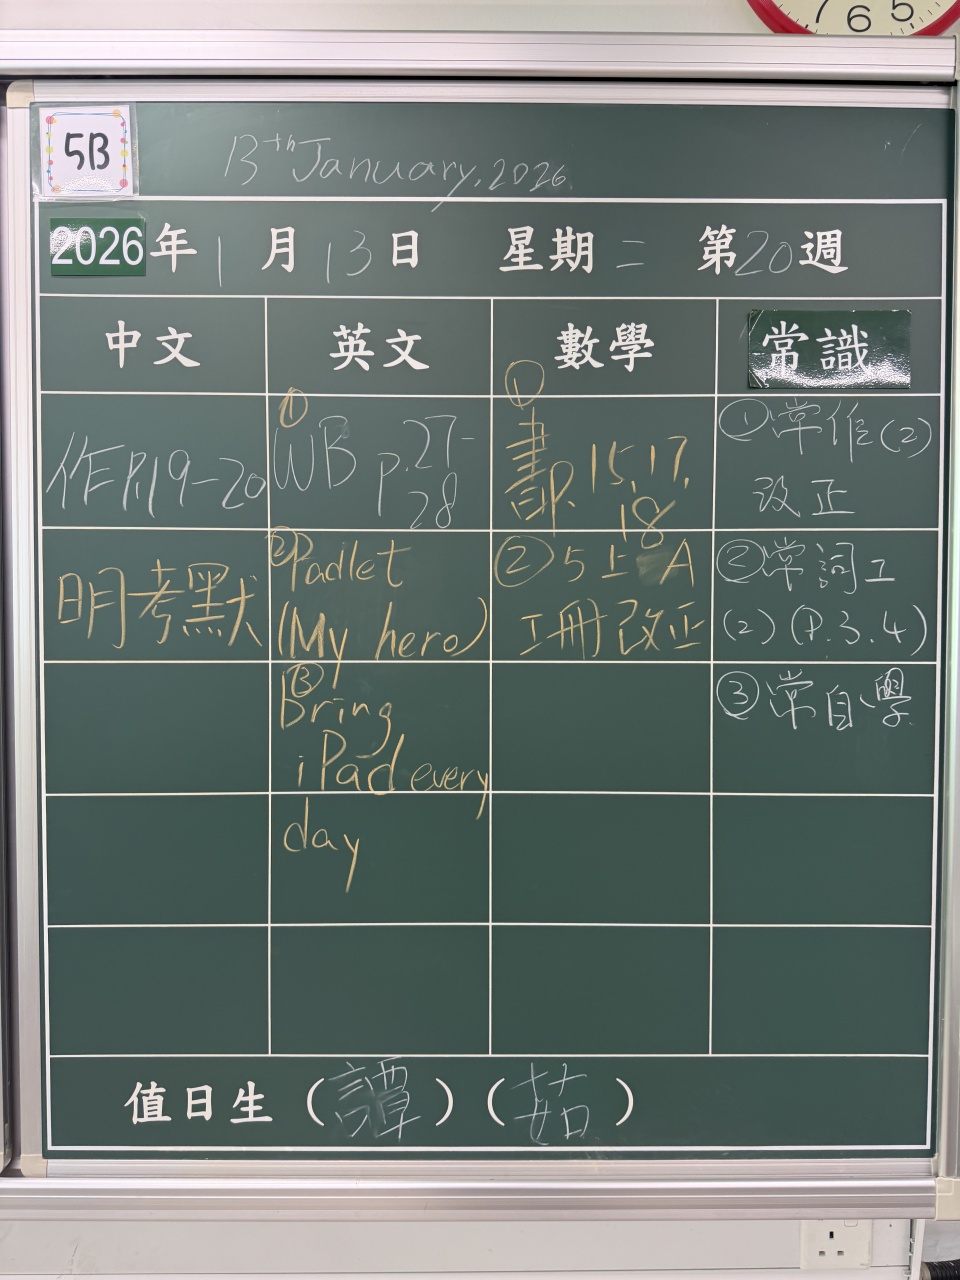 7 6 5
5B
13th January, 2026
2026年1月13日 星期二 第20週
中文 英文 數學 常識
作P.19-20
明考默
① WB P.27-
28
② Padlet
(My hero)
③ Bring
iPad every
day
①
書P.15,17,
18
② 5上A
工冊改正
①常作(2)
改正
②常詞工
(2) (P.3.4)
③常自學
值日生（譚）（茹）